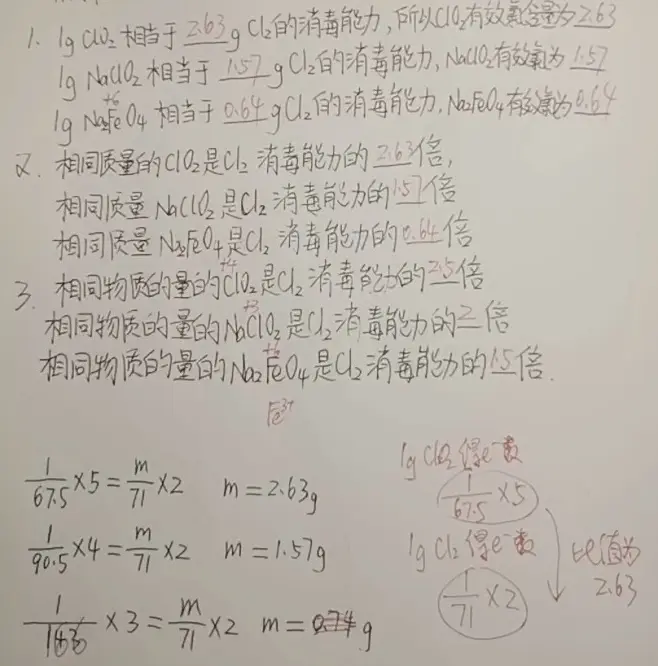 1. 1g ClO₂ 相当于 2.63 g Cl₂的消毒能力,所以ClO₂有效氯含量为2.63
1g NaClO₂ 相当于 1.57 g Cl₂的消毒能力, NaClO₂有效氯为 1.57
+6
1g Na₂FeO₄ 相当于 0.64 g Cl₂的消毒能力. Na₂FeO₄有效氯为 0.64
2. 相同质量的ClO₂是Cl₂ 消毒能力的 2.63倍,
相同质量 NaClO₂是Cl₂ 消毒能力的1.57倍
相同质量 Na₂FeO₄是Cl₂ 消毒能力的0.64倍
+4
3. 相同物质的量的ClO₂是Cl₂ 消毒能力的2.5倍
+3
相同物质的量的NaClO₂是Cl₂消毒能力的2倍
+6
相同物质的量的Na₂FeO₄是Cl₂消毒能力的1.5倍.
Fe³⁺
1/67.5 ×5 = m/71 ×2 m=2.63g
1/90.5 ×4 = m/71 ×2 m=1.57g
× 3 = m/71 ×2 m= g
1g ClO₂ 得e⁻数
1/67.5 ×5
1g Cl₂ 得e⁻数
1/71 ×2
比值为
2.63